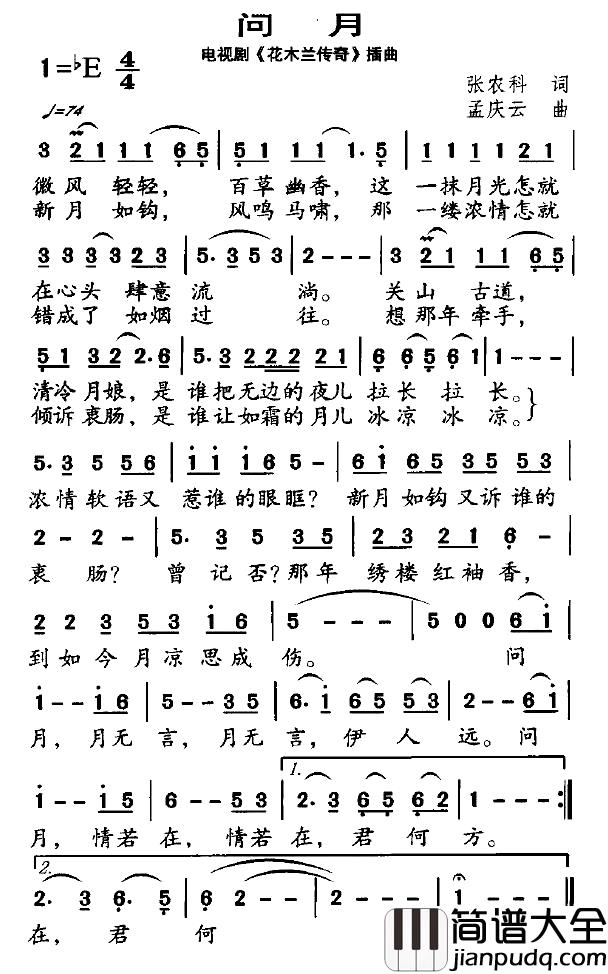 问 月
电视剧《花木兰传奇》插曲
1=♭E 4/4
张农科 词
♩=74
孟庆云 曲
3 2 1 1 1 6 5 | 5 1 1 1 1. 5 | 1 1 1 1 2 1 |
微风 轻轻, 百草幽香, 这 一抹月光怎就
新月 如钩, 风鸣马啸, 那 一缕浓情怎就
3 3 3 3 2 3 | 5. 3 5 3 | 2 - - - | 3 2 1 1 6 5 |
在心头 肆意 流 淌。 关山 古道,
错成了 如烟 过 往。 想那年牵手,
5 1 3 2 2. 6 | 5. 3 2 2 2 2 1 | 6 6 5 6 1 | 1 - - - |
清冷月娘, 是 谁把无边的夜儿 拉长 拉 长。
倾诉衷肠, 是 谁让如霜的月儿 冰凉 冰 凉。
5. 3 5 5 6 | 1 1 1 6 5 - | 6 4 5 3 5 3 5 |
浓情软语又 惹谁的眼眶? 新月如钩又诉谁的
2 - 2 - | 5. 3 5 3 5 | 2 3 2 1 6 5 |
衷 肠? 曾记否?那年 绣楼红袖香,
2 2 3 5 3 1 6 | 5 - - - | 5 0 0 6 1 |
到如今月凉思成 伤。 问
1 - - 1 6 | 5 - - 3 5 | 6. 1 6 5 5 3 | 2 - - 6 1 |
月, 月无 言, 月无 言, 伊 人 远。 问
1 - - 1 5 | 6 - - 5 3 | 1. 2. 3 6 5 6 2 | 1 - - - :||
月, 情若 在, 情若 在, 君 何 方。
2. 2. 3 6. 5 | 6 2 - - | 2 - - - | 1 - - - ||
在, 君 何
简谱大全
jianpudq.com